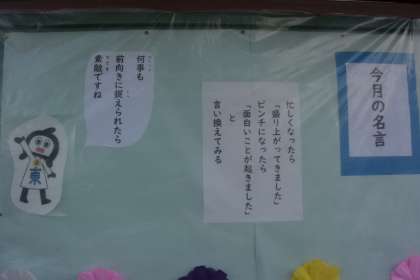 今月の名言
忙しくなったら
「盛り上がってきました」
ピンチになったら
「面白いことが起きました」
と
言い換えてみる
何事も
前向きに捉えられたら
素敵ですね
東